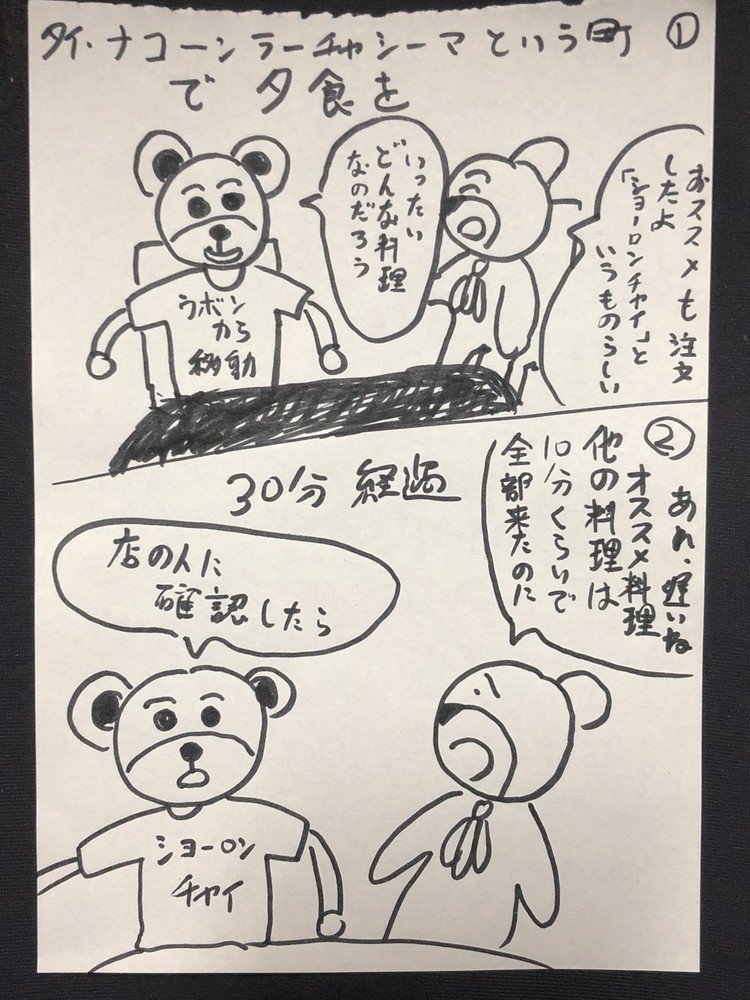 タイ・ナコーンラーチャシーマという町
で夕食を
①
おススメも注文
したよ
「ショーロンチャイ」と
いうものらしい
いったい
どんな料理
なのだろう
ウボン
から
移動
②
30分経過
あれ、遅いね
オススメ料理
他の料理は
10分くらいで
全部来たのに
店の人に
確認したら
ショーロン
チャイ